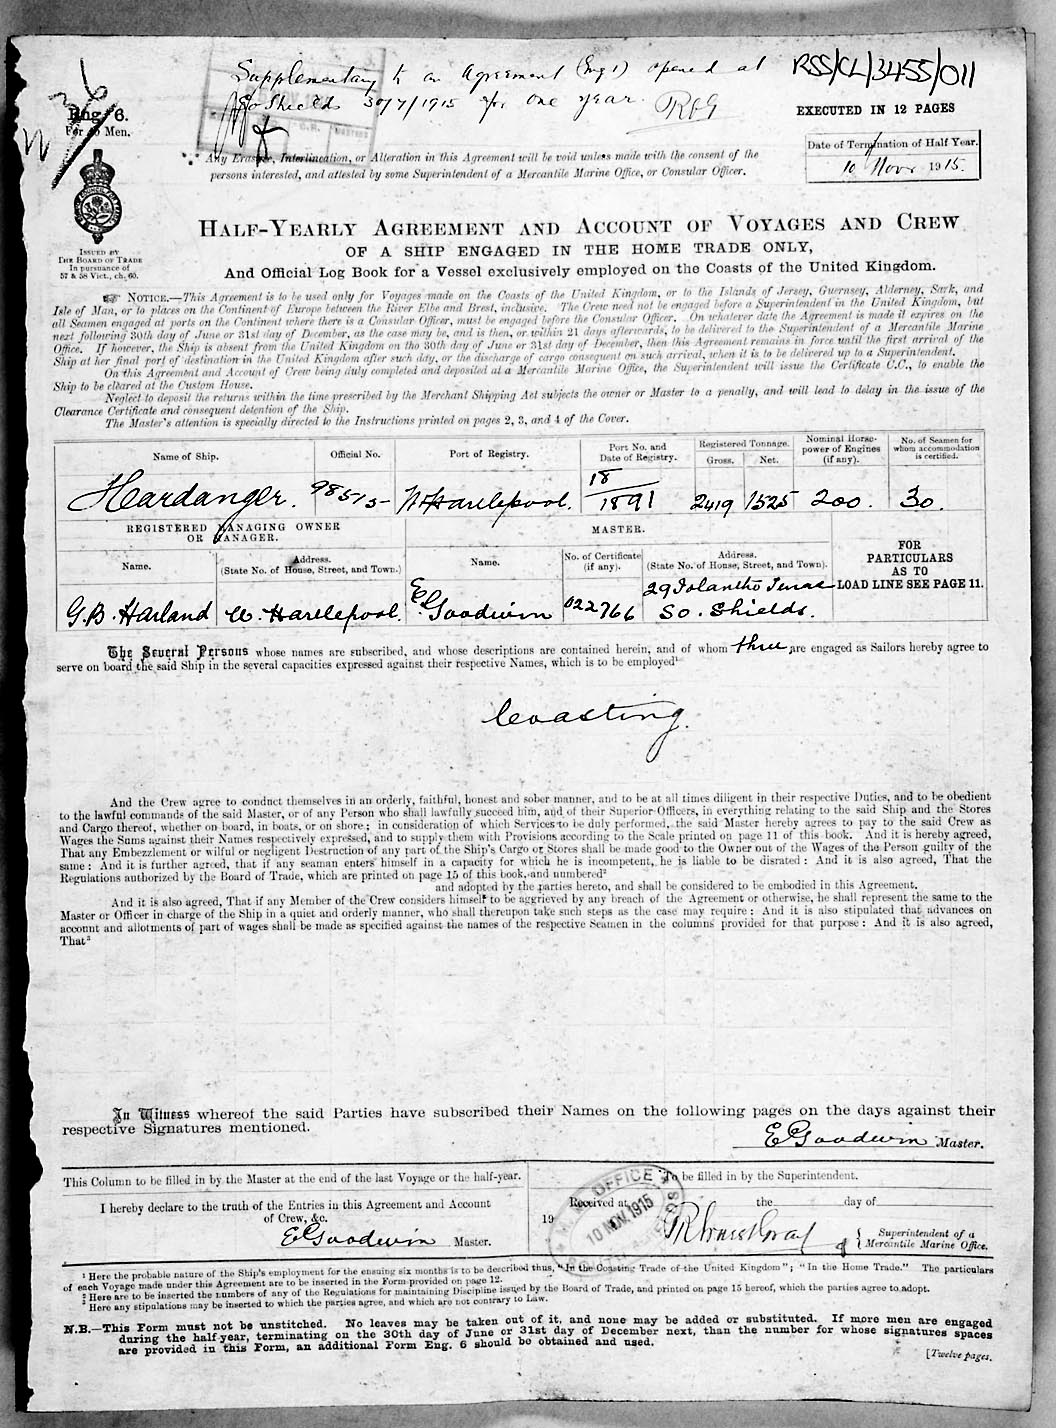 Supplementary to an Agreement (Eng 1) opened at
So Shields 30/7/1915 for one year.
RSS/CL/3455/011
EXECUTED IN 12 PAGES
Eng. 6.
For Men.
Date of Termination of Half Year.
10 Novr 1915.
Any Erasure, Interlineation, or Alteration in this Agreement will be void unless made with the consent of the
persons interested, and attested by some Superintendent of a Mercantile Marine Office, or Consular Officer.
ISSUED BY
THE BOARD OF TRADE
In pursuance of
57 & 58 Vict., ch. 60.
HALF-YEARLY AGREEMENT AND ACCOUNT OF VOYAGES AND CREW
OF A SHIP ENGAGED IN THE HOME TRADE ONLY,
And Official Log Book for a Vessel exclusively employed on the Coasts of the United Kingdom.
☞ NOTICE.—This Agreement is to be used only for Voyages made on the Coasts of the United Kingdom, or to the Islands of Jersey, Guernsey, Alderney, Sark, and
Isle of Man, or to places on the Continent of Europe between the River Elbe and Brest, inclusive. The Crew need not be engaged before a Superintendent in the United Kingdom, but
all Seamen engaged at ports on the Continent where there is a Consular Officer, must be engaged before the Consular Officer. On whatever date the Agreement is made it expires on the
next following 30th day of June or 31st day of December, as the case may be, and is then, or within 21 days afterwards, to be delivered to the Superintendent of a Mercantile Marine
Office. If however, the Ship is absent from the United Kingdom on the 30th day of June or 31st day of December, then this Agreement remains in force until the first arrival of the
Ship at her final port of destination in the United Kingdom after such day, or the discharge of cargo consequent on such arrival, when it is to be delivered up to a Superintendent.
On this Agreement and Account of Crew being duly completed and deposited at a Mercantile Marine Office, the Superintendent will issue the Certificate C.C., to enable the
Ship to be cleared at the Custom House.
Neglect to deposit the returns within the time prescribed by the Merchant Shipping Act subjects the owner or Master to a penalty, and will lead to delay in the issue of the
Clearance Certificate and consequent detention of the Ship.
The Master's attention is specially directed to the Instructions printed on pages 2, 3, and 4 of the Cover.
Name of Ship. Official No. Port of Registry. Port No. and Date of Registry. Registered Tonnage. Gross. Net. Nominal Horse-power of Engines (if any). No. of Seamen for whom accommodation is certified.
Hardanger. 98515 W. Hartlepool. 18/1891 2419 1525 200. 30.
REGISTERED MANAGING OWNER OR MANAGER. MASTER.
Name. Address. (State No. of House, Street, and Town.) Name. No. of Certificate (if any). Address. (State No. of House, Street, and Town).
FOR PARTICULARS AS TO LOAD LINE SEE PAGE 11.
G.B. Harland W. Hartlepool. E Goodwin 022766 29 Iolanthe Terrace So. Shields.
The Several Persons whose names are subscribed, and whose descriptions are contained herein, and of whom three are engaged as Sailors hereby agree to
serve on board the said Ship in the several capacities expressed against their respective Names, which is to be employed¹
Coasting.
And the Crew agree to conduct themselves in an orderly, faithful, honest and sober manner, and to be at all times diligent in their respective Duties, and to be obedient
to the lawful commands of the said Master, or of any Person who shall lawfully succeed him, and of their Superior Officers, in everything relating to the said Ship and the Stores
and Cargo thereof, whether on board, in boats, or on shore; in consideration of which Services to be duly performed, the said Master hereby agrees to pay to the said Crew as
Wages the Sums against their Names respectively expressed, and to supply them with Provisions according to the Scale printed on page 11 of this book. And it is hereby agreed,
That any Embezzlement or wilful or negligent Destruction of any part of the Ship's Cargo or Stores shall be made good to the Owner out of the Wages of the Person guilty of the
same: And it is further agreed, that if any seaman enters himself in a capacity for which he is incompetent, he is liable to be disrated: And it is also agreed, That the
Regulations authorized by the Board of Trade, which are printed on page 15 of this book and numbered²
and adopted by the parties hereto, and shall be considered to be embodied in this Agreement.
And it is also agreed, That if any Member of the Crew considers himself to be aggrieved by any breach of the Agreement or otherwise, he shall represent the same to the
Master or Officer in charge of the Ship in a quiet and orderly manner, who shall thereupon take such steps as the case may require: And it is also stipulated that advances on
account and allotments of part of wages shall be made as specified against the names of the respective Seamen in the columns provided for that purpose: And it is also agreed,
That³
In Witness whereof the said Parties have subscribed their Names on the following pages on the days against their
respective Signatures mentioned.
E Goodwin Master.
This Column to be filled in by the Master at the end of the last Voyage or the half-year.
I hereby declare to the truth of the Entries in this Agreement and Account
of Crew, &c.
E Goodwin Master.
To be filled in by the Superintendent.
Received at the day of
19
OFFICE
10 NOV. 1915
Superintendent of a
Mercantile Marine Office.
¹ Here the probable nature of the Ship's employment for the ensuing six months is to be described thus, "In the Coasting Trade of the United Kingdom"; "In the Home Trade." The particulars
of each Voyage made under this Agreement are to be inserted in the Form provided on page 12.
² Here are to be inserted the numbers of any of the Regulations for maintaining Discipline issued by the Board of Trade, and printed on page 15 hereof, which the parties agree to adopt.
³ Here any stipulations may be inserted to which the parties agree, and which are not contrary to Law.
N.B.—This Form must not be unstitched. No leaves may be taken out of it, and none may be added or substituted. If more men are engaged
during the half-year, terminating on the 30th day of June or 31st day of December next, than the number for whose signatures spaces
are provided in this Form, an additional Form Eng. 6 should be obtained and used.
[Twelve pages.